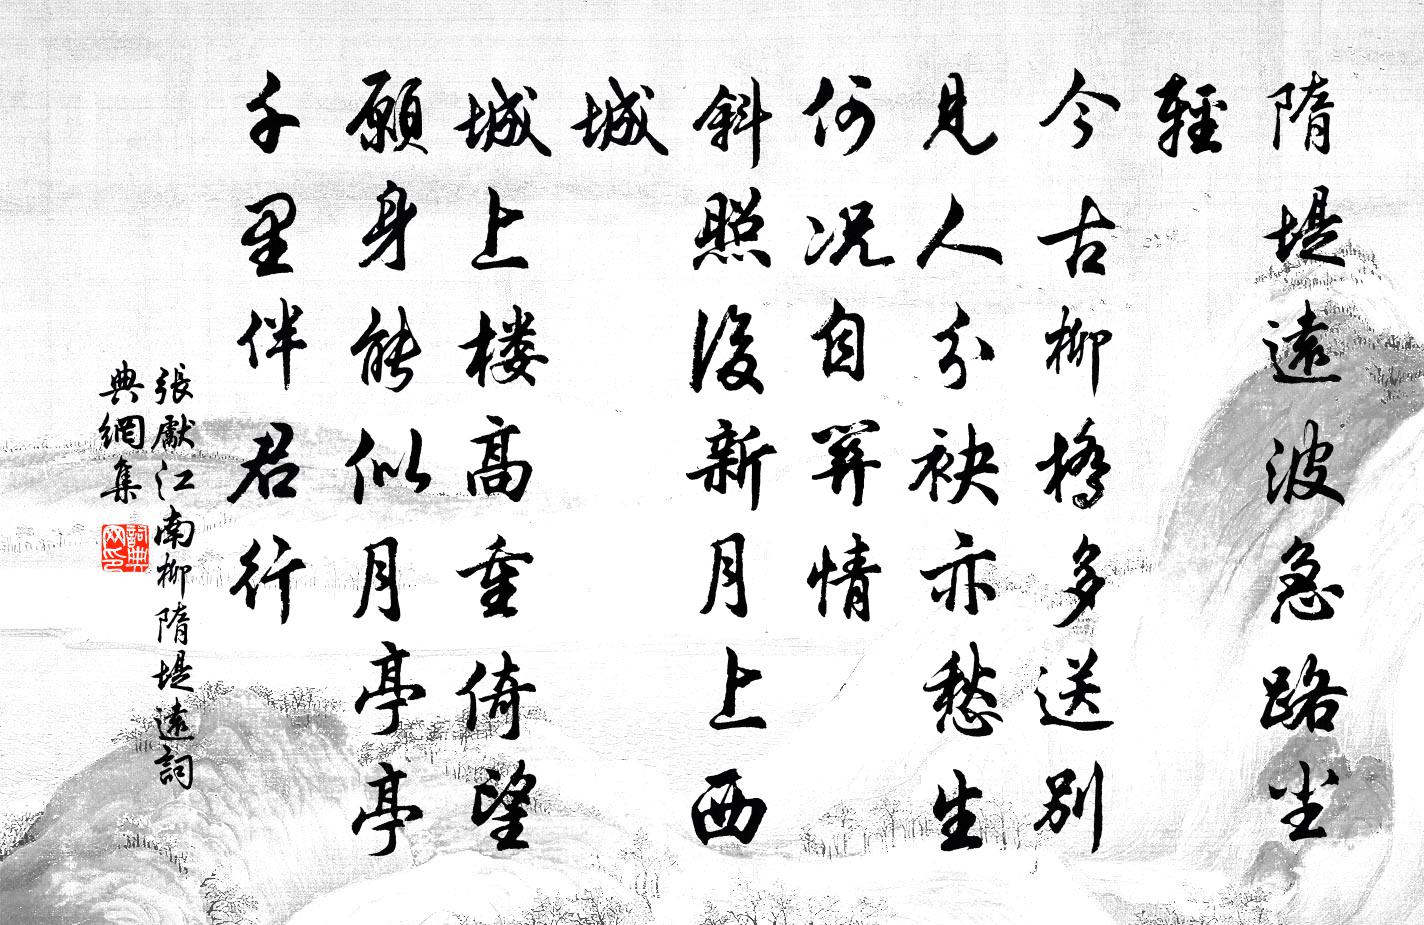 隋堤遠波急路尘
輕
今古柳橋多送别
見人分袂亦愁生
何况自関情
斜照後新月上西
城
城上楼高重倚望
願身能似月亭亭
千里伴君行
張獻江南柳隋堤遠詞
典網集
詞典
网印